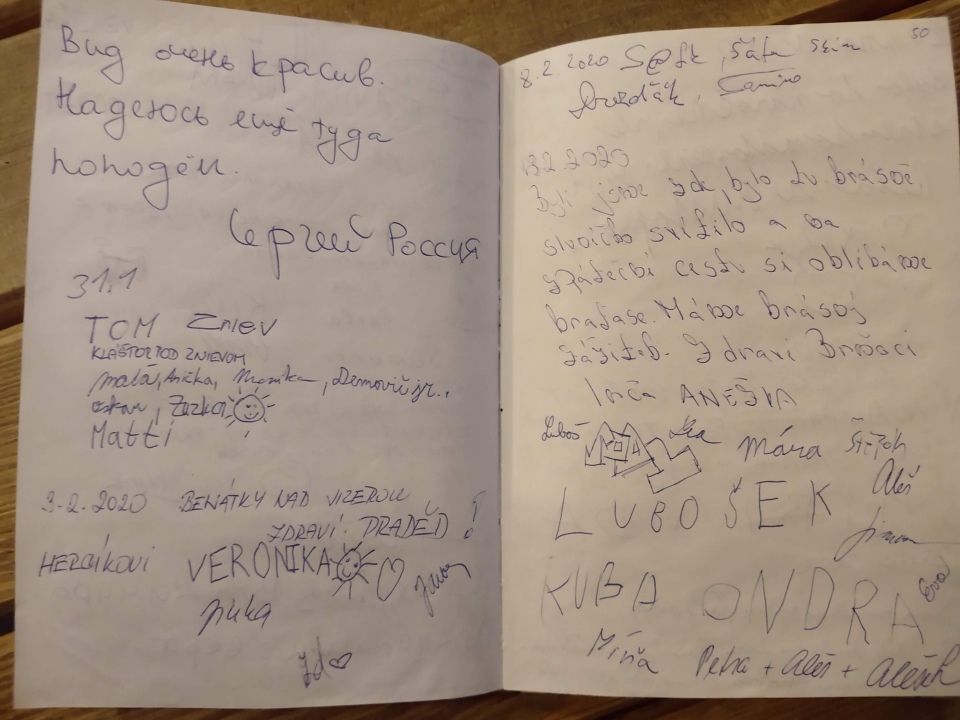 Вид очень красив.
Надеюсь ещё туда
попадём.
Сергей Россия
31.1
TOM Zniev
KLÁŠTOR POD ZNIEVOM
malá, Anička, Monika, Demovič jr..
Zuzka
Matti
3.2.2020 BENÁTKY NAD JIZEROU
ZDRAVÍ PRADĚD!
HERCÍKOVI VERONIKA
Jirka
50
8.2.2020 S@fk, Šáfa
Camino
2.2020
Byli jsme zde, bylo tu krásně
sluníčko svítilo a na
zpáteční cestu si oblíbáme
Máme krásný
zážitek. Zdraví Brňáci
ANEŽKA
Luboš
Mára Štěpán
Aleš
LUBOŠEK
KUBA ONDRA
Eva
Míňa Petra + Aleš + Alešek